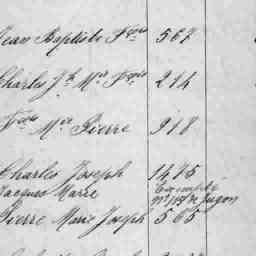 Jean Baptiste Fçois 567
Charles Jh Mie Fçois 214
Fçois Mie Pierre 918
Charles Joseph 1475
Jacques Marie Exempté
Nº 115 de Jugon
Pierre Marie Joseph 565